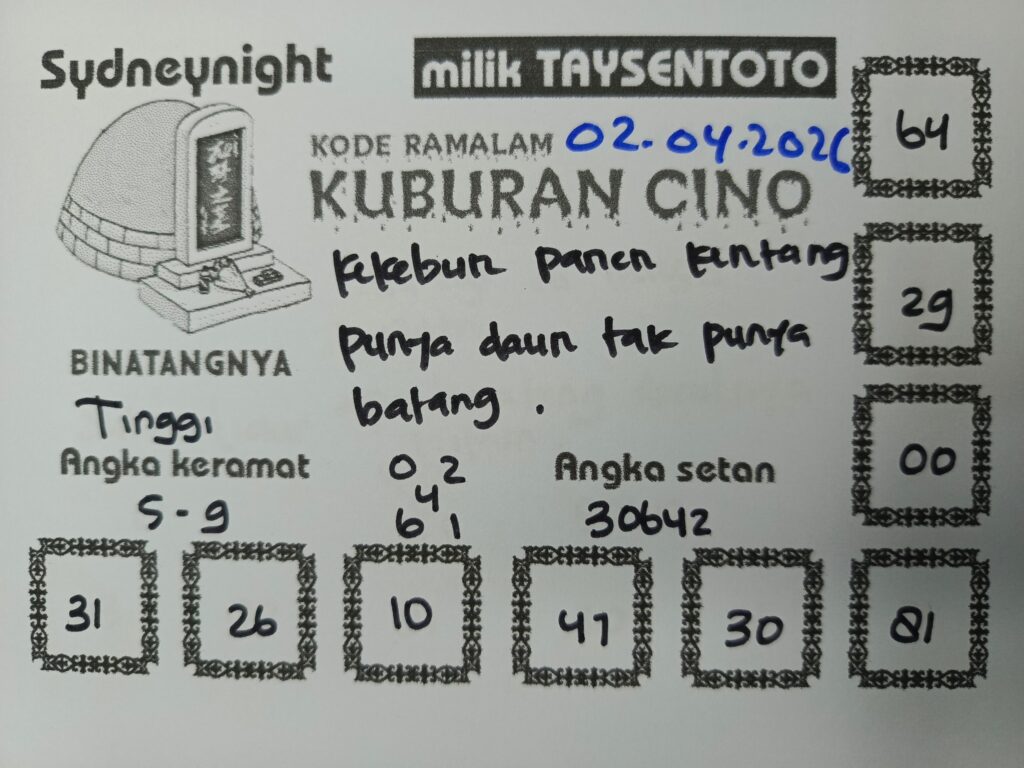 Sydneynight
milik TAYSENTOTO
KODE RAMALAM 02.04.2026
KUBURAN CINO
Kekebun panen kentang
punya daun tak punya
batang.
BINATANGNYA
Tinggi
Angka keramat
5-9
0 2
4
6 1
Angka setan
30642
64
29
00
31 26 10 41 30 81